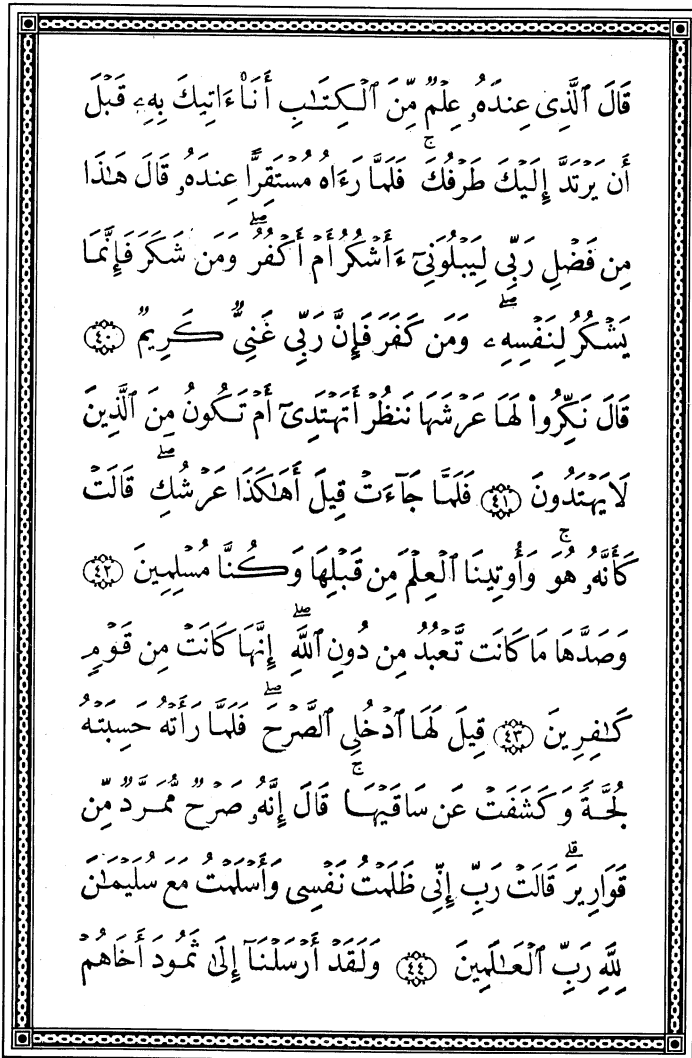 قَالَ ٱلَّذِى عِندَهُۥ عِلْمٌ مِّنَ ٱلْكِتَٰبِ أَنَا۠ ءَاتِيكَ بِهِۦ قَبْلَ
أَن يَرْتَدَّ إِلَيْكَ طَرْفُكَ ۚ فَلَمَّا رَءَاهُ مُسْتَقِرًّا عِندَهُۥ قَالَ هَٰذَا
مِن فَضْلِ رَبِّى لِيَبْلُوَنِىٓ ءَأَشْكُرُ أَمْ أَكْفُرُ ۖ وَمَن شَكَرَ فَإِنَّمَا
يَشْكُرُ لِنَفْسِهِۦ ۖ وَمَن كَفَرَ فَإِنَّ رَبِّى غَنِىٌّ كَرِيمٌ ٤٠
قَالَ نَكِّرُوا۟ لَهَا عَرْشَهَا نَنظُرْ أَتَهْتَدِىٓ أَمْ تَكُونُ مِنَ ٱلَّذِينَ
لَا يَهْتَدُونَ ٤١ فَلَمَّا جَآءَتْ قِيلَ أَهَٰكَذَا عَرْشُكِ ۖ قَالَتْ
كَأَنَّهُۥ هُوَ ۚ وَأُوتِينَا ٱلْعِلْمَ مِن قَبْلِهَا وَكُنَّا مُسْلِمِينَ ٤٢
وَصَدَّهَا مَا كَانَت تَّعْبُدُ مِن دُونِ ٱللَّهِ ۖ إِنَّهَا كَانَتْ مِن قَوْمٍ
كَٰفِرِينَ ٤٣ قِيلَ لَهَا ٱدْخُلِى ٱلصَّرْحَ ۖ فَلَمَّا رَأَتْهُ حَسِبَتْهُ
لُجَّةً وَكَشَفَتْ عَن سَاقَيْهَا ۚ قَالَ إِنَّهُۥ صَرْحٌ مُّمَرَّدٌ مِّن
قَوَارِيرَ ۗ قَالَتْ رَبِّ إِنِّى ظَلَمْتُ نَفْسِى وَأَسْلَمْتُ مَعَ سُلَيْمَٰنَ
لِلَّهِ رَبِّ ٱلْعَٰلَمِينَ ٤٤ وَلَقَدْ أَرْسَلْنَآ إِلَىٰ ثَمُودَ أَخَاهُمْ